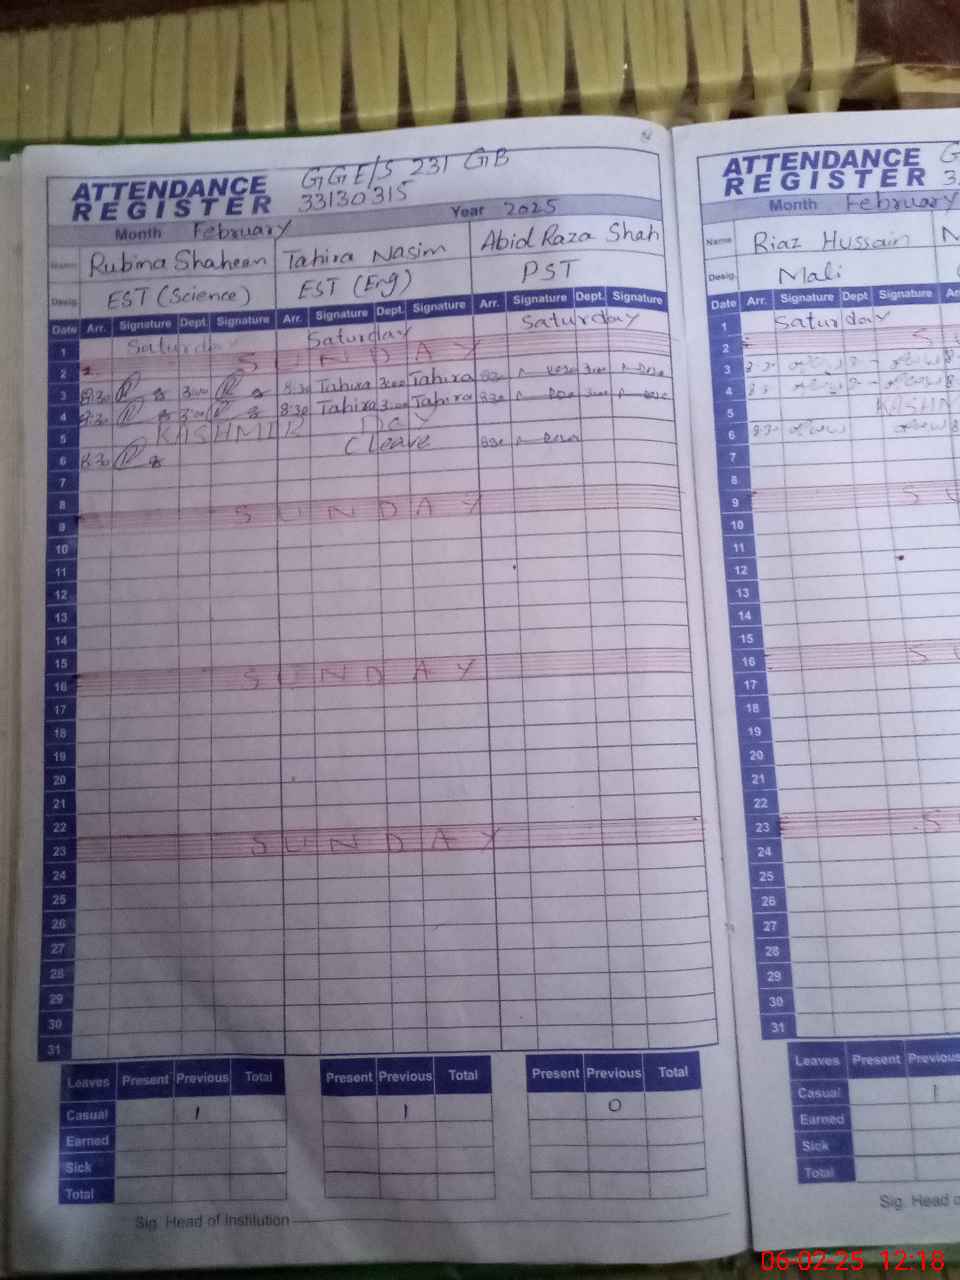 GGE/S 231 GB
ATTENDANCE
REGISTER
33130315
Month February Year 2025
Name Rubina Shaheen Tahira Nasim Abid Raza Shah
Desig. EST (Science) EST (Eng) PST
Date Arr. Signature Dept. Signature Arr. Signature Dept. Signature Arr. Signature Dept. Signature
1 Saturday Saturday Saturday
2 SUNDAY
3 8:30 3:00 8:30 Tahira 3:00 Tahira 830 3:00
4 8:30 3:00 8:30 Tahira 3:00 Tahira 830 3:00
5 KASHMIR DAY
6 8:30 C leave 830
7
8
9 SUNDAY
10
11
12
13
14
15
16 SUNDAY
17
18
19
20
21
22
23 SUNDAY
24
25
26
27
28
29
30
31
Leaves Present Previous Total Present Previous Total Present Previous Total
Casual 1 1 0
Earned
Sick
Total
Sig. Head of Institution
ATTENDANCE G
REGISTER 3
Month February
Name Riaz Hussain
Desig. Mali
Date Arr. Signature Dept Signature
1 Saturday
2 S
3 8:30
4
5 KASHM
6 8:30
7
8
9 SU
10
11
12
13
14
15
16 SU
17
18
19
20
21
22
23 S
24
25
26
27
28
29
30
31
Leaves Present Previous
Casual 1
Earned
Sick
Total
Sig. Head
06-02-25 12:18